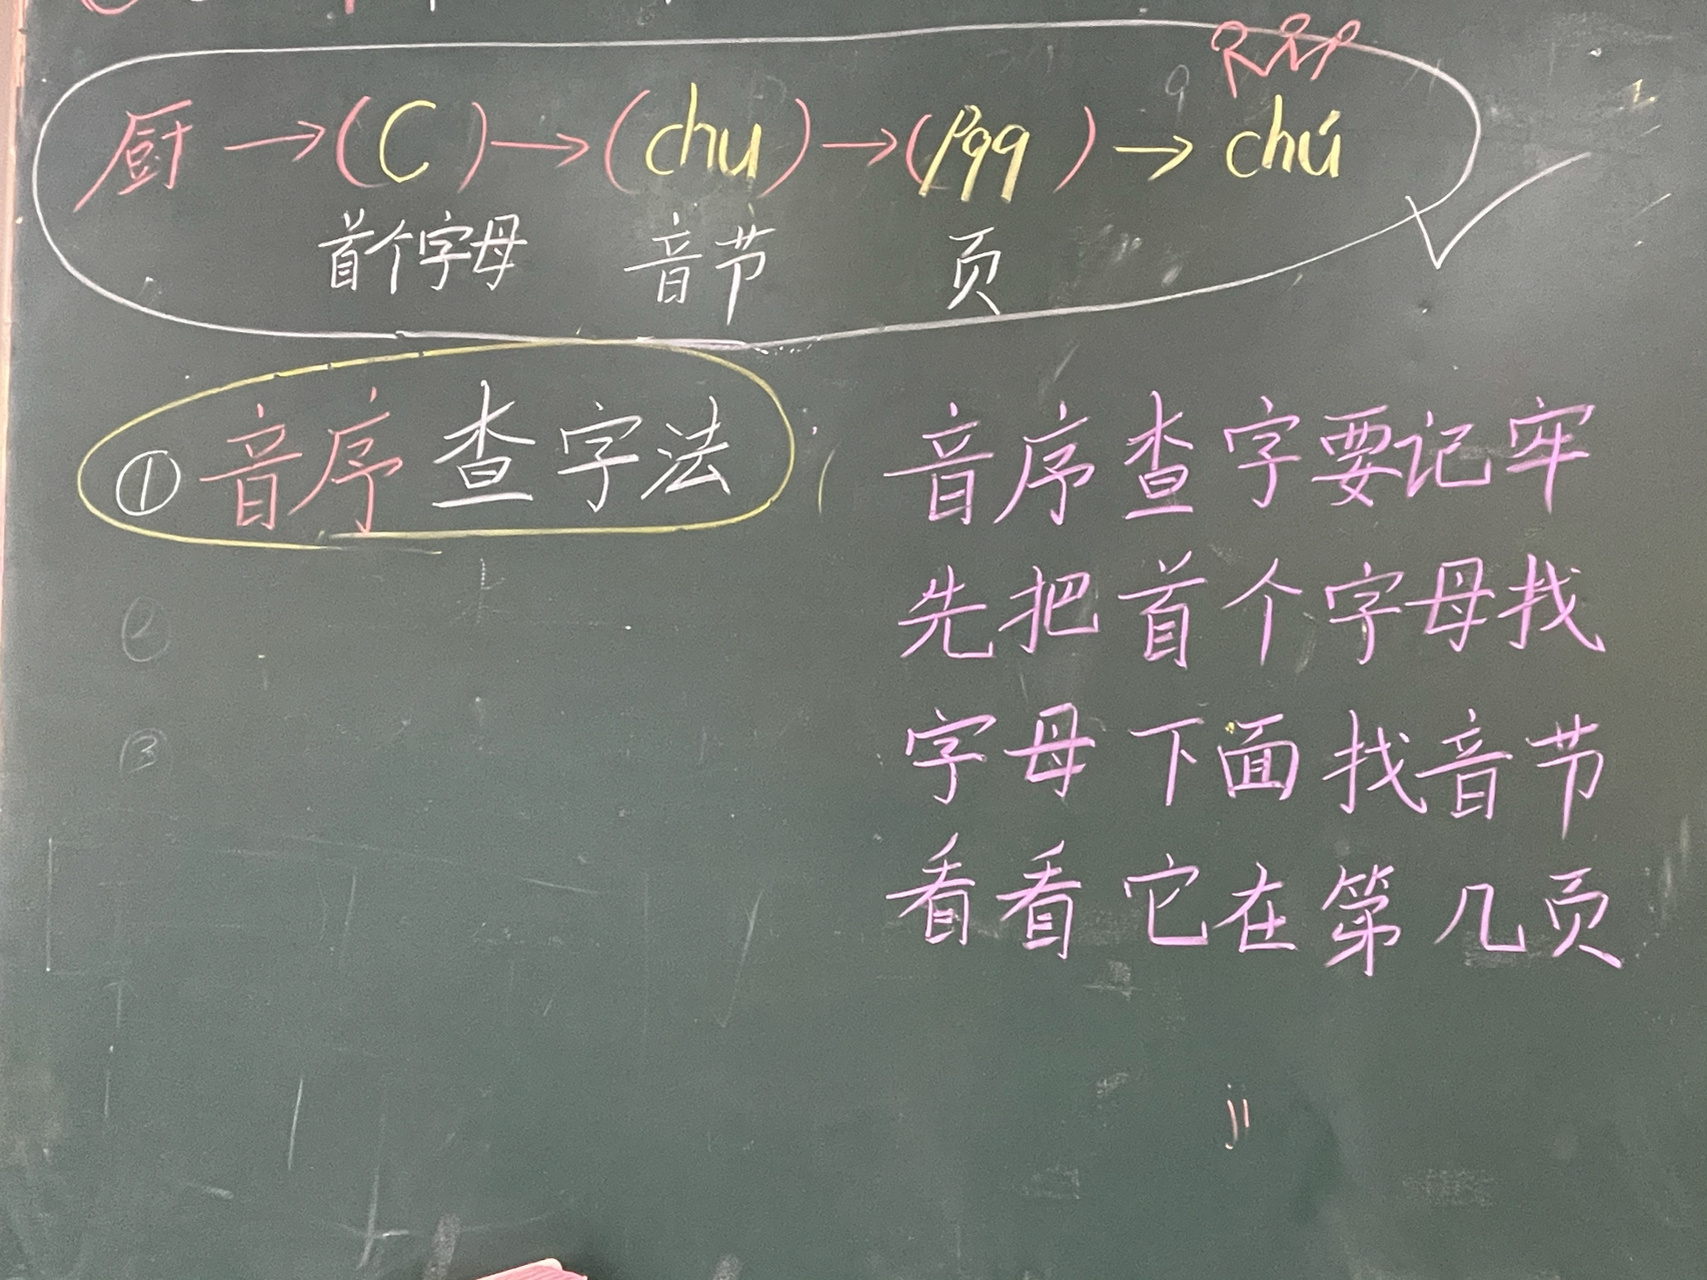 厨→(C)→(chu)→(P99)→chú
首个字母 音节 页
①音序查字法
音序查字要记牢
先把首个字母找
字母下面找音节
看看它在第几页
②
③
ji